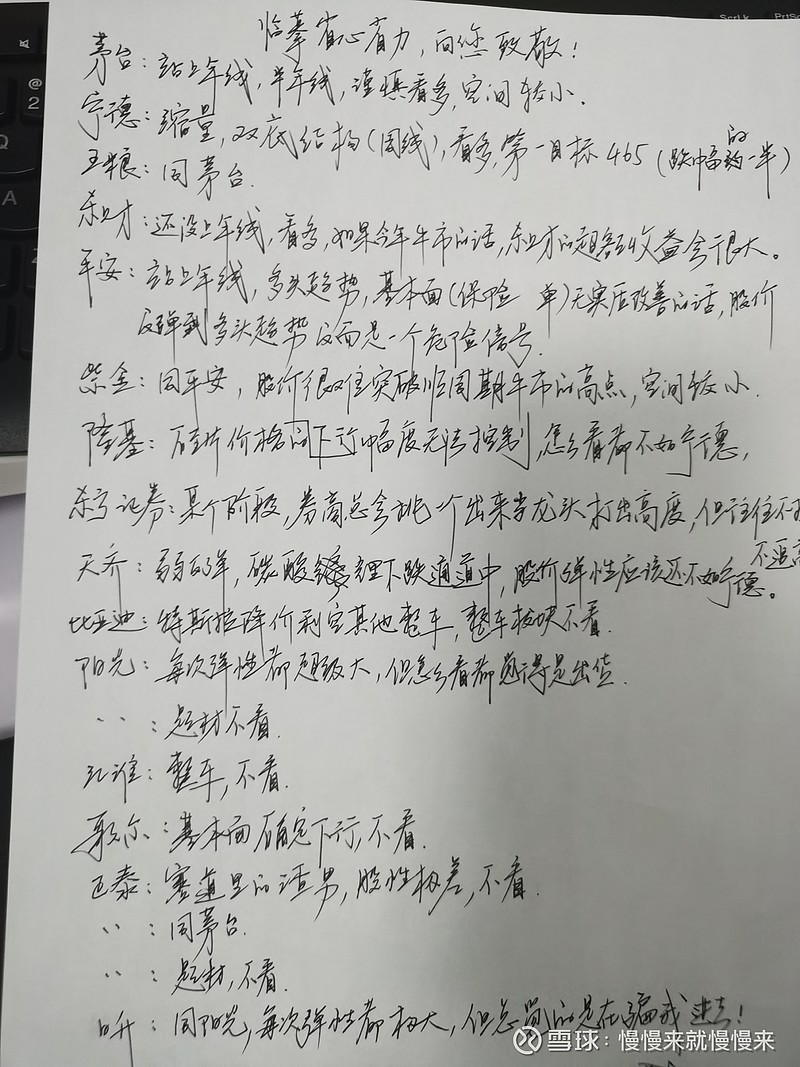 临摹省心省力，向您致敬！
茅台：站上年线，半年线，谨慎看多，空间较小．
宁德：缩量，双底结构（周线），看多，第一目标 465（跌幅的约一半）
五粮：同茅台．
东财：还没上年线，看多，如果今年牛市的话，东财的超额收益会很大。
平安：站上年线，多头趋势，基本面（保险 单）无实质改善的话，股价
反弹到多头趋势反而是一个危险信号．
紫金：同平安，股价很难突破顺周期牛市的高点，空间较小．
隆基：硅片价格向下行幅度无法控制，怎么看都不如宁德，
证券：某个阶段，券商总会挑一个出来当龙头打出高度，但往往不
不追高
天齐：弱反弹，碳酸锂下跌通道中，股价弹性应该还不如宁德。
比亚迪：特斯拉降价利空其他整车，整车板块不看．
阳光：每次弹性都超级大，但怎么看都觉得是出货．
：题材不看．
江淮：整车，不看．
歌尔：基本面确定下行，不看．
正泰：赛道里的渣男，股性极差，不看．
：同茅台．
：题材，不看．
同阳光，每次弹性都极大，但总是在骗我进去！
雪球：慢慢来就慢慢来
ScrLk
@
2
Q
A